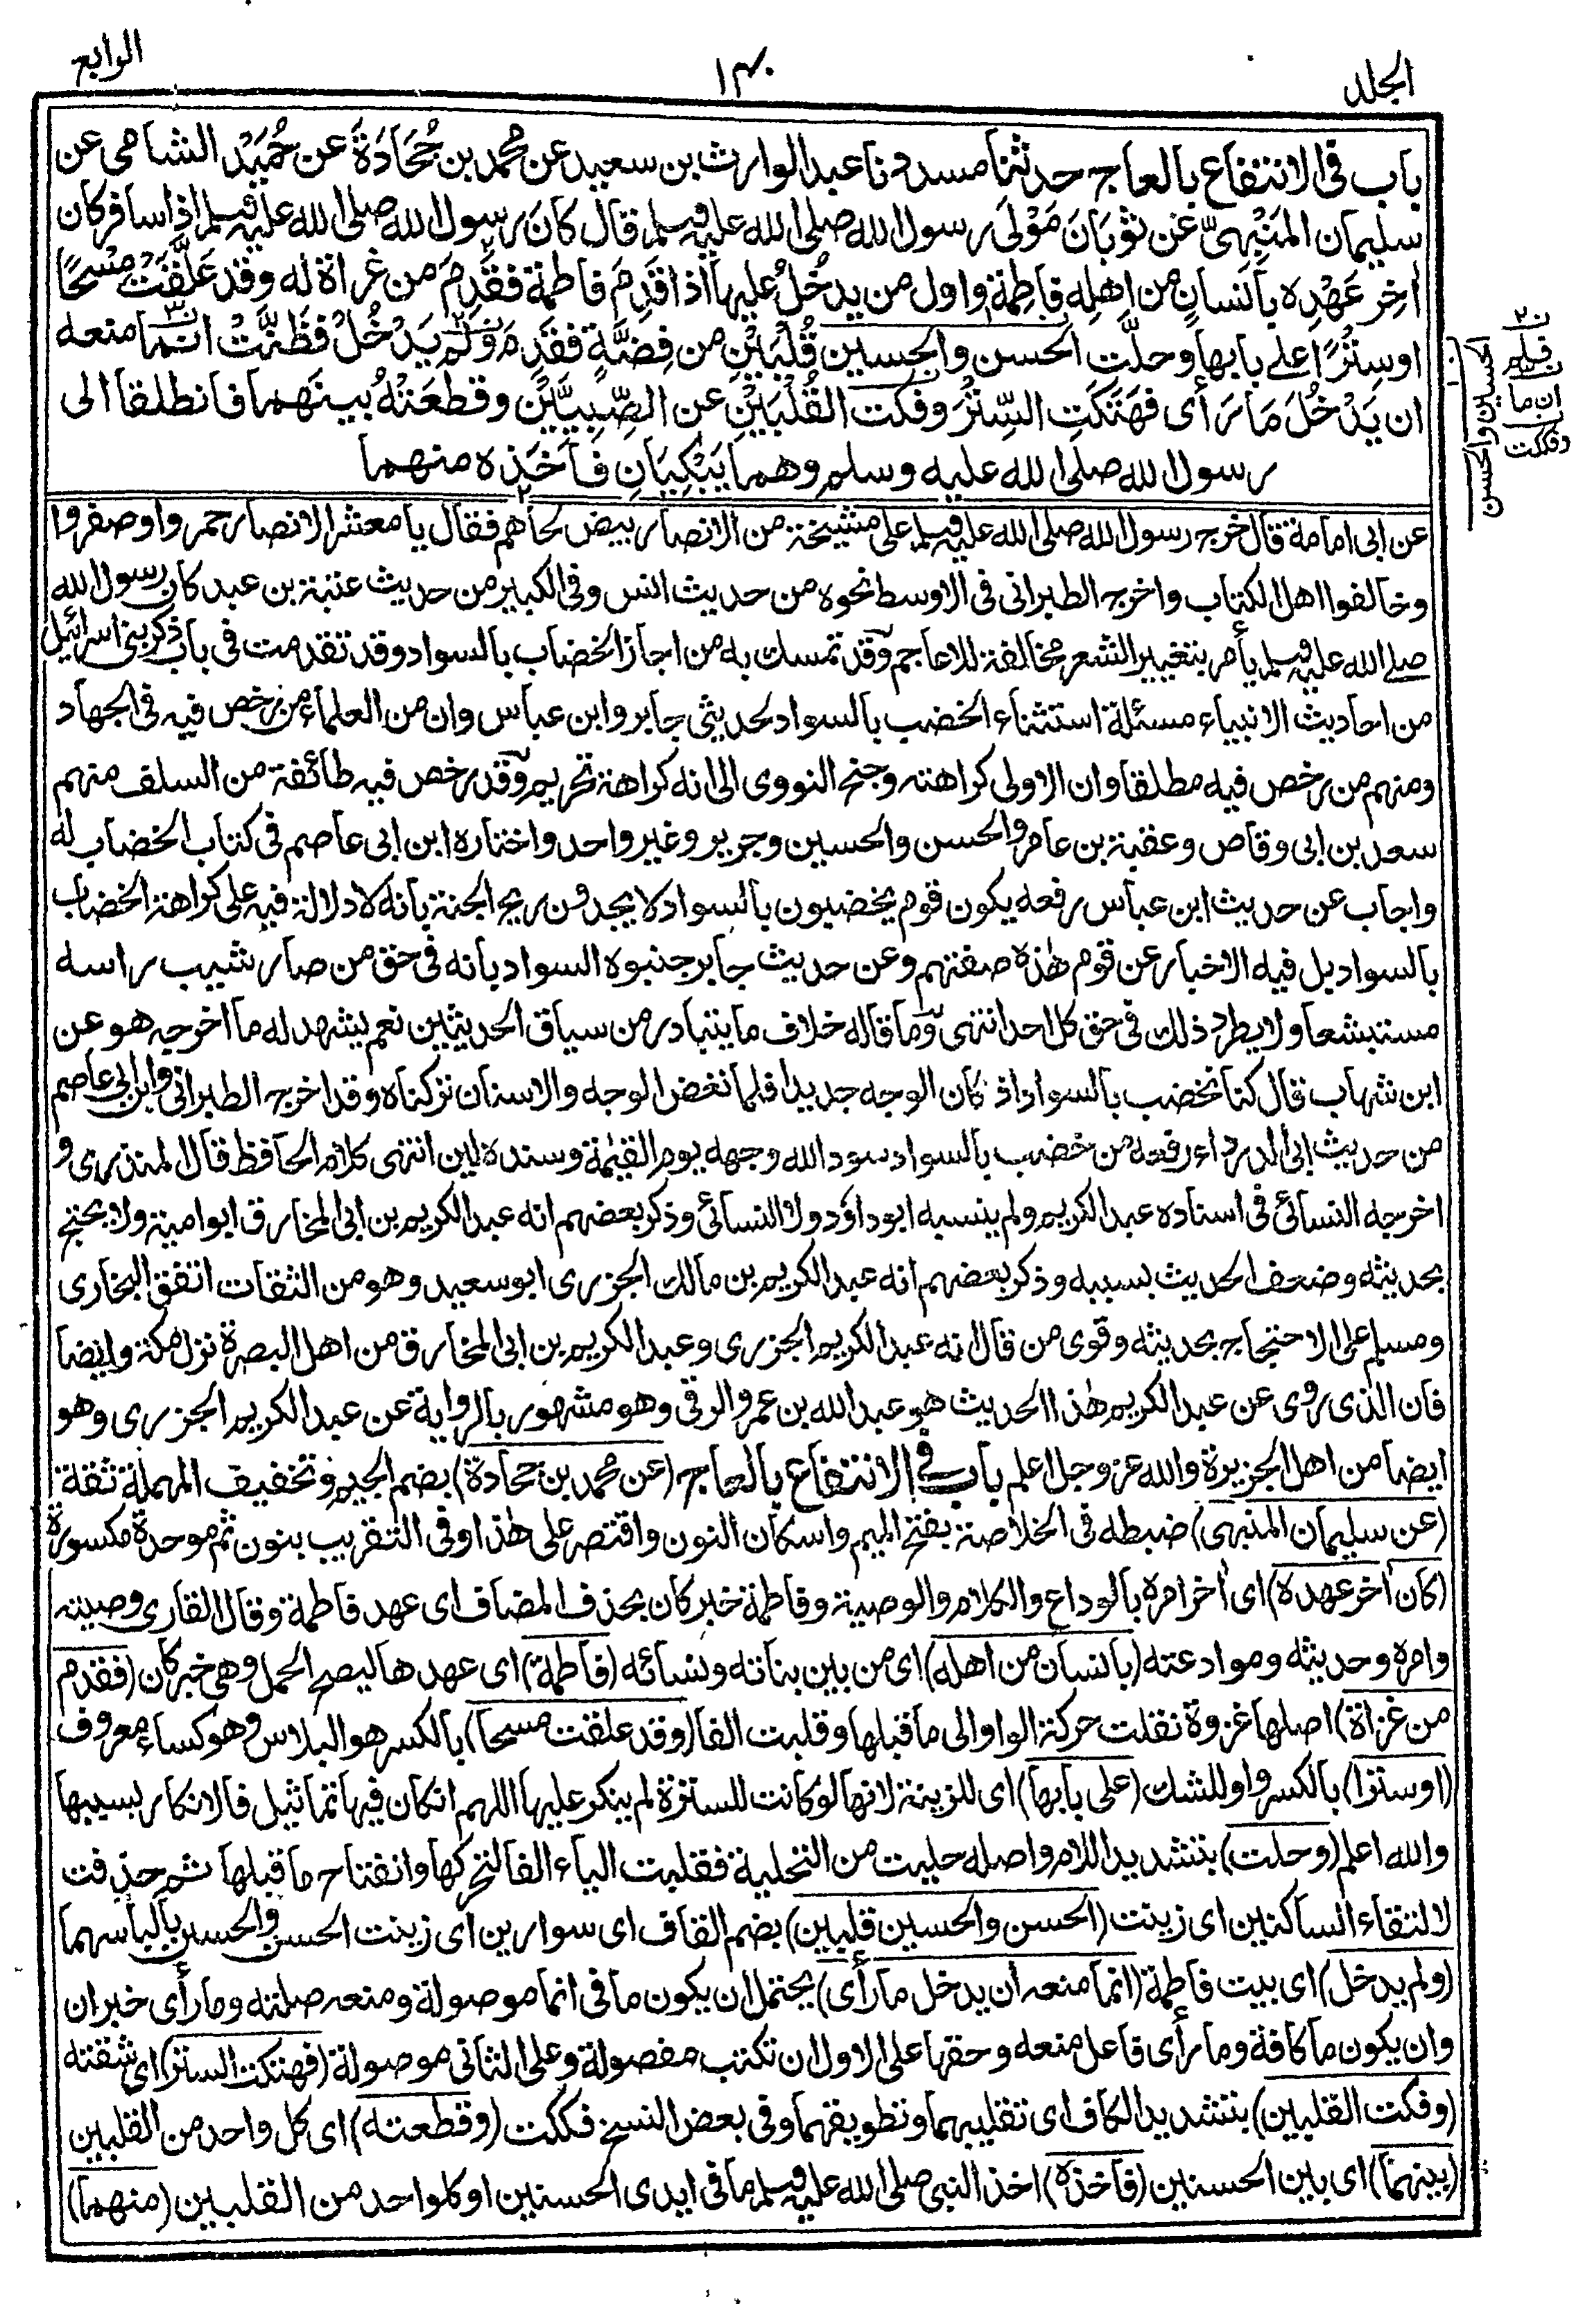 الجلد
١٤٠
الرابع
باب فى الانتفاع بالعاج حدثنا مسدد نا عبد الوارث بن سعيد عن محمد بن جُحَادَةَ عن حُمَيْد الشامى عن
سليمان المَنْبِهىّ عن ثَوْبَانَ مَوْلَى رسول الله صلى الله عليه وسلم قال كَانَ رسول الله صلى الله عليه وسلم اذا سافر كان
اٰخِر عَهْدِه بِاَنسانٍ من اهلِه فاطِمَة واول من يدخُلُ عليها اذا قَدِمَ فاطمة فقَدِمَ من غزاة له وقد عَلَّقَتْ مِسْحًا
اوسِتْرًا على بابها وحلَّت الحسن والحسين قُلْبَيْنِ من فِضَّةٍ فقَدِمَ وَلَم يَدْخُلْ فظَنَّتْ انما منعه
ان يَدْخُلَ مَا رَأى فهَتَكَتِ السِّتْرَ وفكت القُلْبَيْنِ عن الصَّبِيَّيْنِ وقطعَتْهُ بينَهما فانطلقا الى
رسول الله صلى الله عليه وسلم وهما يَبْكِيَانِ فَاَخَذه منهما
ن٢
فلم
ن٣
ان ما
وفككت
الحسين والحسن
عن ابى امامة قال خرج رسول الله صلى الله عليه وسلم على مشيخة من الانصار بيض لحاهم فقال يا معشر الانصار حمروا وصفروا
وخالفوا اهل الكتاب واخرج الطبرانى فى الاوسط نحوه من حديث انس وفى الكبير من حديث عتبة بن عبد كان رسول الله
صلى الله عليه وسلم يأمر بتغيير الشعر مخالفة للاعاجم وقد تمسك به من اجاز الخضاب بالسواد وقد تقدمت فى باب ذكر بنى اسرائيل
من احاديث الانبياء مسئلة استثناء الخضب بالسواد لحديثى جابر وابن عباس وان من العلماء من رخص فيه فى الجهاد
ومنهم من رخص فيه مطلقا وان الاولى كراهته وجنح النووى الى انه كراهة تحريم وقد رخص فيه طائفة من السلف منهم
سعد بن ابى وقاص وعقبة بن عامر والحسن والحسين وجرير وغير واحد واختاره ابن ابى عاصم فى كتاب الخضاب له
واجاب عن حديث ابن عباس رفعه يكون قوم يخضبون بالسواد لا يجدون ريح الجنة بانه لا دلالة فيه على كراهة الخضاب
بالسواد بل فيه الاخبار عن قوم هٰذه صفتهم وعن حديث جابر جنبوه السواد بانه فى حق من صار شيب راسه
مستبشعا ولا يطرد ذلك فى حق كل احد انتهى وما قاله خلاف ما يتبادر من سياق الحديثين نعم يشهد له ما اخرجه هو عن
ابن شهاب قال كنا نخضب بالسواد اذ كان الوجه جديدا فلما نغض الوجه والاسنان تركناه وقد اخرج الطبرانى وابن ابى عاصم
من حديث ابى الدرداء رفعه من خضب بالسواد سود الله وجهه يوم القيٰمة وسنده لين انتهى كلام الحافظ قال المنذرى و
اخرجه النسائى فى اسناده عبد الكريم ولم ينسبه ابو داؤد ولا النسائى وذكر بعضهم انه عبد الكريم بن ابى المخارق ابو امية ولا يحتج
بحديثه وضعف الحديث بسببه وذكر بعضهم انه عبد الكريم بن مالك الجزرى ابو سعيد وهو من الثقات اتفق البخارى
ومسلم على الاحتجاج بحديثه وقوى من قال انه عبد الكريم الجزرى وعبد الكريم بن ابى المخارق من اهل البصرة نزل مكة وايضا
فان الذى روى عن عبد الكريم هٰذا الحديث هو عبد الله بن عمرو الرقى وهو مشهور بالرواية عن عبد الكريم الجزرى وهو
ايضا من اهل الجزيرة والله عز وجل اعلم باب فى الانتفاع بالعاج (عن محمد بن جحادة) بضم الجيم وتخفيف المهملة ثقة
(عن سليمان المنبهى) ضبطه فى الخلاصة بفتح الميم واسكان النون واقتصر على هٰذا وفى التقريب بنون ثم موحدة مكسورة
(كان اٰخر عهده) اى اٰخر امره بالوداع والكلام والوصية وفاطمة خبر كان بحذف المضاف اى عهد فاطمة وقال القارى وصيته
وامره وحديثه وموادعته (بانسان من اهله) اى من بين بناته ونسائه (فاطمة) اى عهدها ليصح الحمل وهى خبر كان (فقدم
من غزاة) اصلها غزوة نقلت حركة الواو الى ما قبلها وقلبت الفا (وقد علقت مسحا) بالكسر هو البلاس وهو كساء معروف
(اوسترا) بالكسر واو للشك (على بابها) اى للزينة لانها لو كانت للسترة لم ينكر عليها اللهم ان كان فيها تماثيل فالانكار بسببها
والله اعلم (وحلت) بتشديد اللام واصله حليت من التحلية فقلبت الياء الفا لتحركها وانفتاح ما قبلها ثم حذفت
لالتقاء الساكنين اى زينت (الحسن والحسين قلبين) بضم القاف اى سوارين اى زينت الحسن والحسين بالباسهما
(ولم يدخل) اى بيت فاطمة (انما منعه ان يدخل ما رأى) يحتمل ان يكون ما فى انما موصولة ومنعه صلته وما رأى خبر ان
وان يكون ما كافة وما رأى فاعل منعه وحقها على الاول ان تكتب مفصولة وعلى الثانى موصولة (فهتكت الستر) اى شقته
(وفكت القلبين) بتشديد الكاف اى تقليبهما وتطويقهما وفى بعض النسخ فككت (وقطعته) اى كل واحد من القلبين
(بينهما) اى بين الحسنين (فاخذه) اخذ النبى صلى الله عليه وسلم ما فى ايدى الحسنين او كلا واحد من القلبين (منهما)